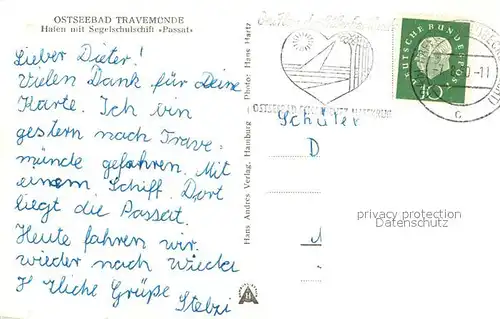 OSTSEEBAD TRAVEMÜNDE
Hafen mit Segelschulschiff »Passat«
Lieber Dieter!
Vielen Dank für Deine
Karte. Ich bin
gestern nach Trave-
münde gefahren. Mit
einem Schiff. Dort
liegt die Passat.
Heute fahren wir
wieder nach
H zliche Grüße
Stelzi
Hans Andres Verlag, Hamburg Photo: Hans Hartz
OSTSEEBAD
DEUTSCHE BUNDESPOST
10
c
Schüler
D
privacy protection
Datenschutz